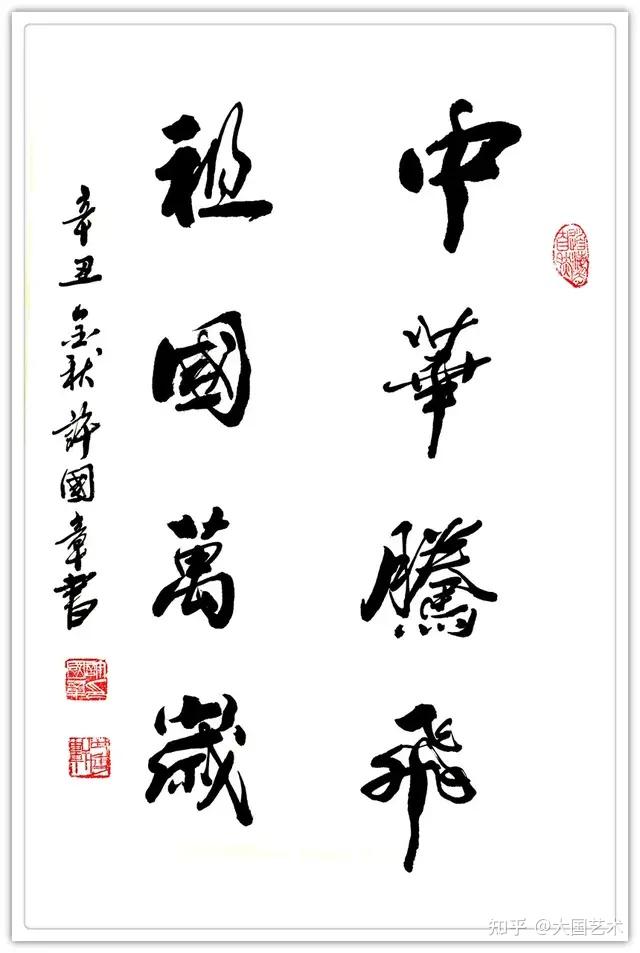 中華騰飛
祖國萬歲
辛丑金秋許國章書
知乎 @大国艺术